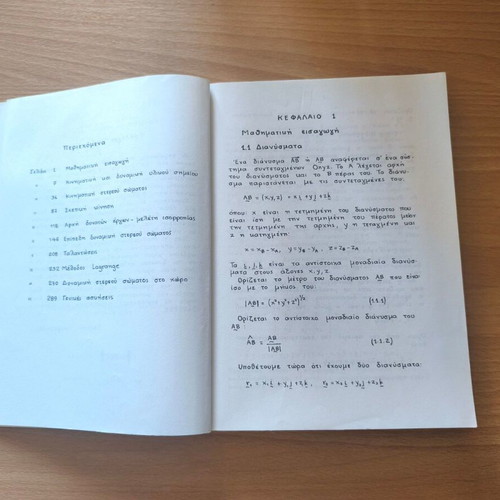 Περιεχόμενα
Σελίδα 1 Μαθηματική εισαγωγή
" Κινηματική και δυναμική υλικού σημείου
" Κινηματική στερεού σώματος
" 81 Σχετική κίνηση
" Αρχή δυνατών έργων - μελέτη ισορροπίας
" 144 Επίπεδη δυναμική στερεού σώματος
" 208 Ταλαντώσεις
" 232 Μέθοδος Lagrange
" Δυναμική στερεού σώματος στο χώρο
" 289 Γενικές ασκήσεις
ΚΕΦΑΛΑΙΟ 1
Μαθηματική εισαγωγή
1.1 Διανύσματα
Ένα διάνυσμα AB ή AB αναφέρεται σ' ένα σύσ-
τημα συντεταγμένων Oxyz. Το A λέγεται αρχή
του διανύσματος και το B πέρας του. Το διάνυ-
σμα παριστάνεται με τις συντεταγμένες του.
AB = (x,y,z) = xi + yj + zk
όπου x είναι η τετμημένη του διανύσματος που
είναι ίση με την τετμημένη του πέρατος μείον
την τετμημένη της αρχής, y η τεταγμένη και
z η κατηγμένη:
x = x_B - x_A, y = y_B - y_A, z = z_B - z_A
Τα i, j, k είναι τα αντίστοιχα μοναδιαία διανύσ-
ματα στους άξονες x, y, z.
Ορίζεται το μέτρο του διανύσματος AB που είναι
ίσο με το μήκος του:
|AB| = (x²+y²+z²)^1/2 (1.1.1)
Ορίζεται το αντίστοιχο μοναδιαίο διάνυσμα του
AB
ÂB = AB / |AB| (1.1.2)
Υποθέτουμε τώρα ότι έχουμε δύο διανύσματα:
r₁ = x₁i + y₁j + z₁k, r₂ = x₂i + y₂j + z₂k